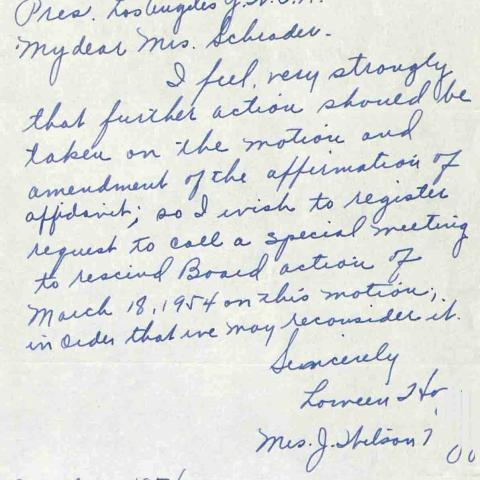 Pres. Los Angeles Y.W.C.A.
My dear Mrs. Schrader.
I feel, very strongly
that further action should be
taken on the motion and
amendment of the affirmation of
affidavit; so I wish to register
request to call a special meeting
to rescind Board action of
March 18, 1954 on this motion,
in order that we may reconsider it.
Sincerely
Mrs. J. Wilson